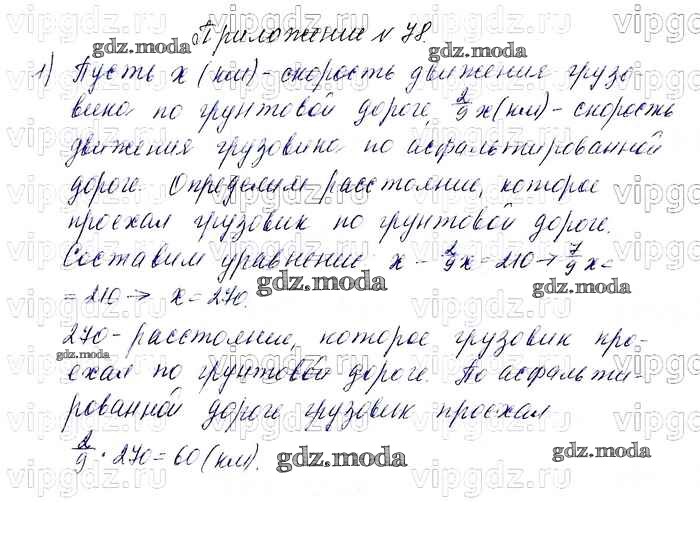 Приложение № 78
1) Пусть x (км) - скорость движения грузо-
вика по грунтовой дороге, 2/9 x (км) - скорость
движения грузовика по асфальтированной
дороге. Определим расстояние, которое
проехал грузовик по грунтовой дороге.
Составим уравнение x - 2/9 x = 210 → 7/9 x =
= 210 → x = 270.
270 - расстояние, которое грузовик про-
ехал по грунтовой дороге. По асфальти-
рованной дороге грузовик проехал
2/9 · 270 = 60 (км).
gdz.moda
vipgdz.com